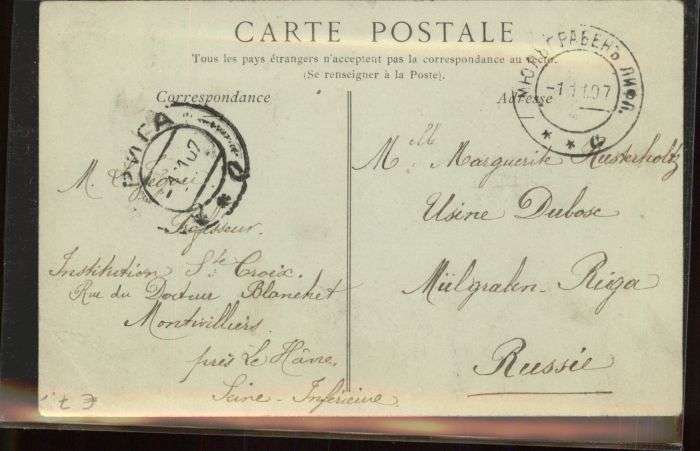 CARTE POSTALE
Tous les pays étrangers n'acceptent pas la correspondance au recto.
(Se renseigner à la Poste).
Correspondance
Adresse
МЮЛЬГРАБЕНЪ ЛИФЛ.
-1 11 07
РИГА
07
M.
Professeur.
Institution Ste Croix.
Rue du Docteur Blanchet
Montivilliers.
près Le Hâvre.
Seine-Inférieure
Mlle Marguerite Husterholtz
Usine Dubosc
Mülgrabn-Riga
Russie